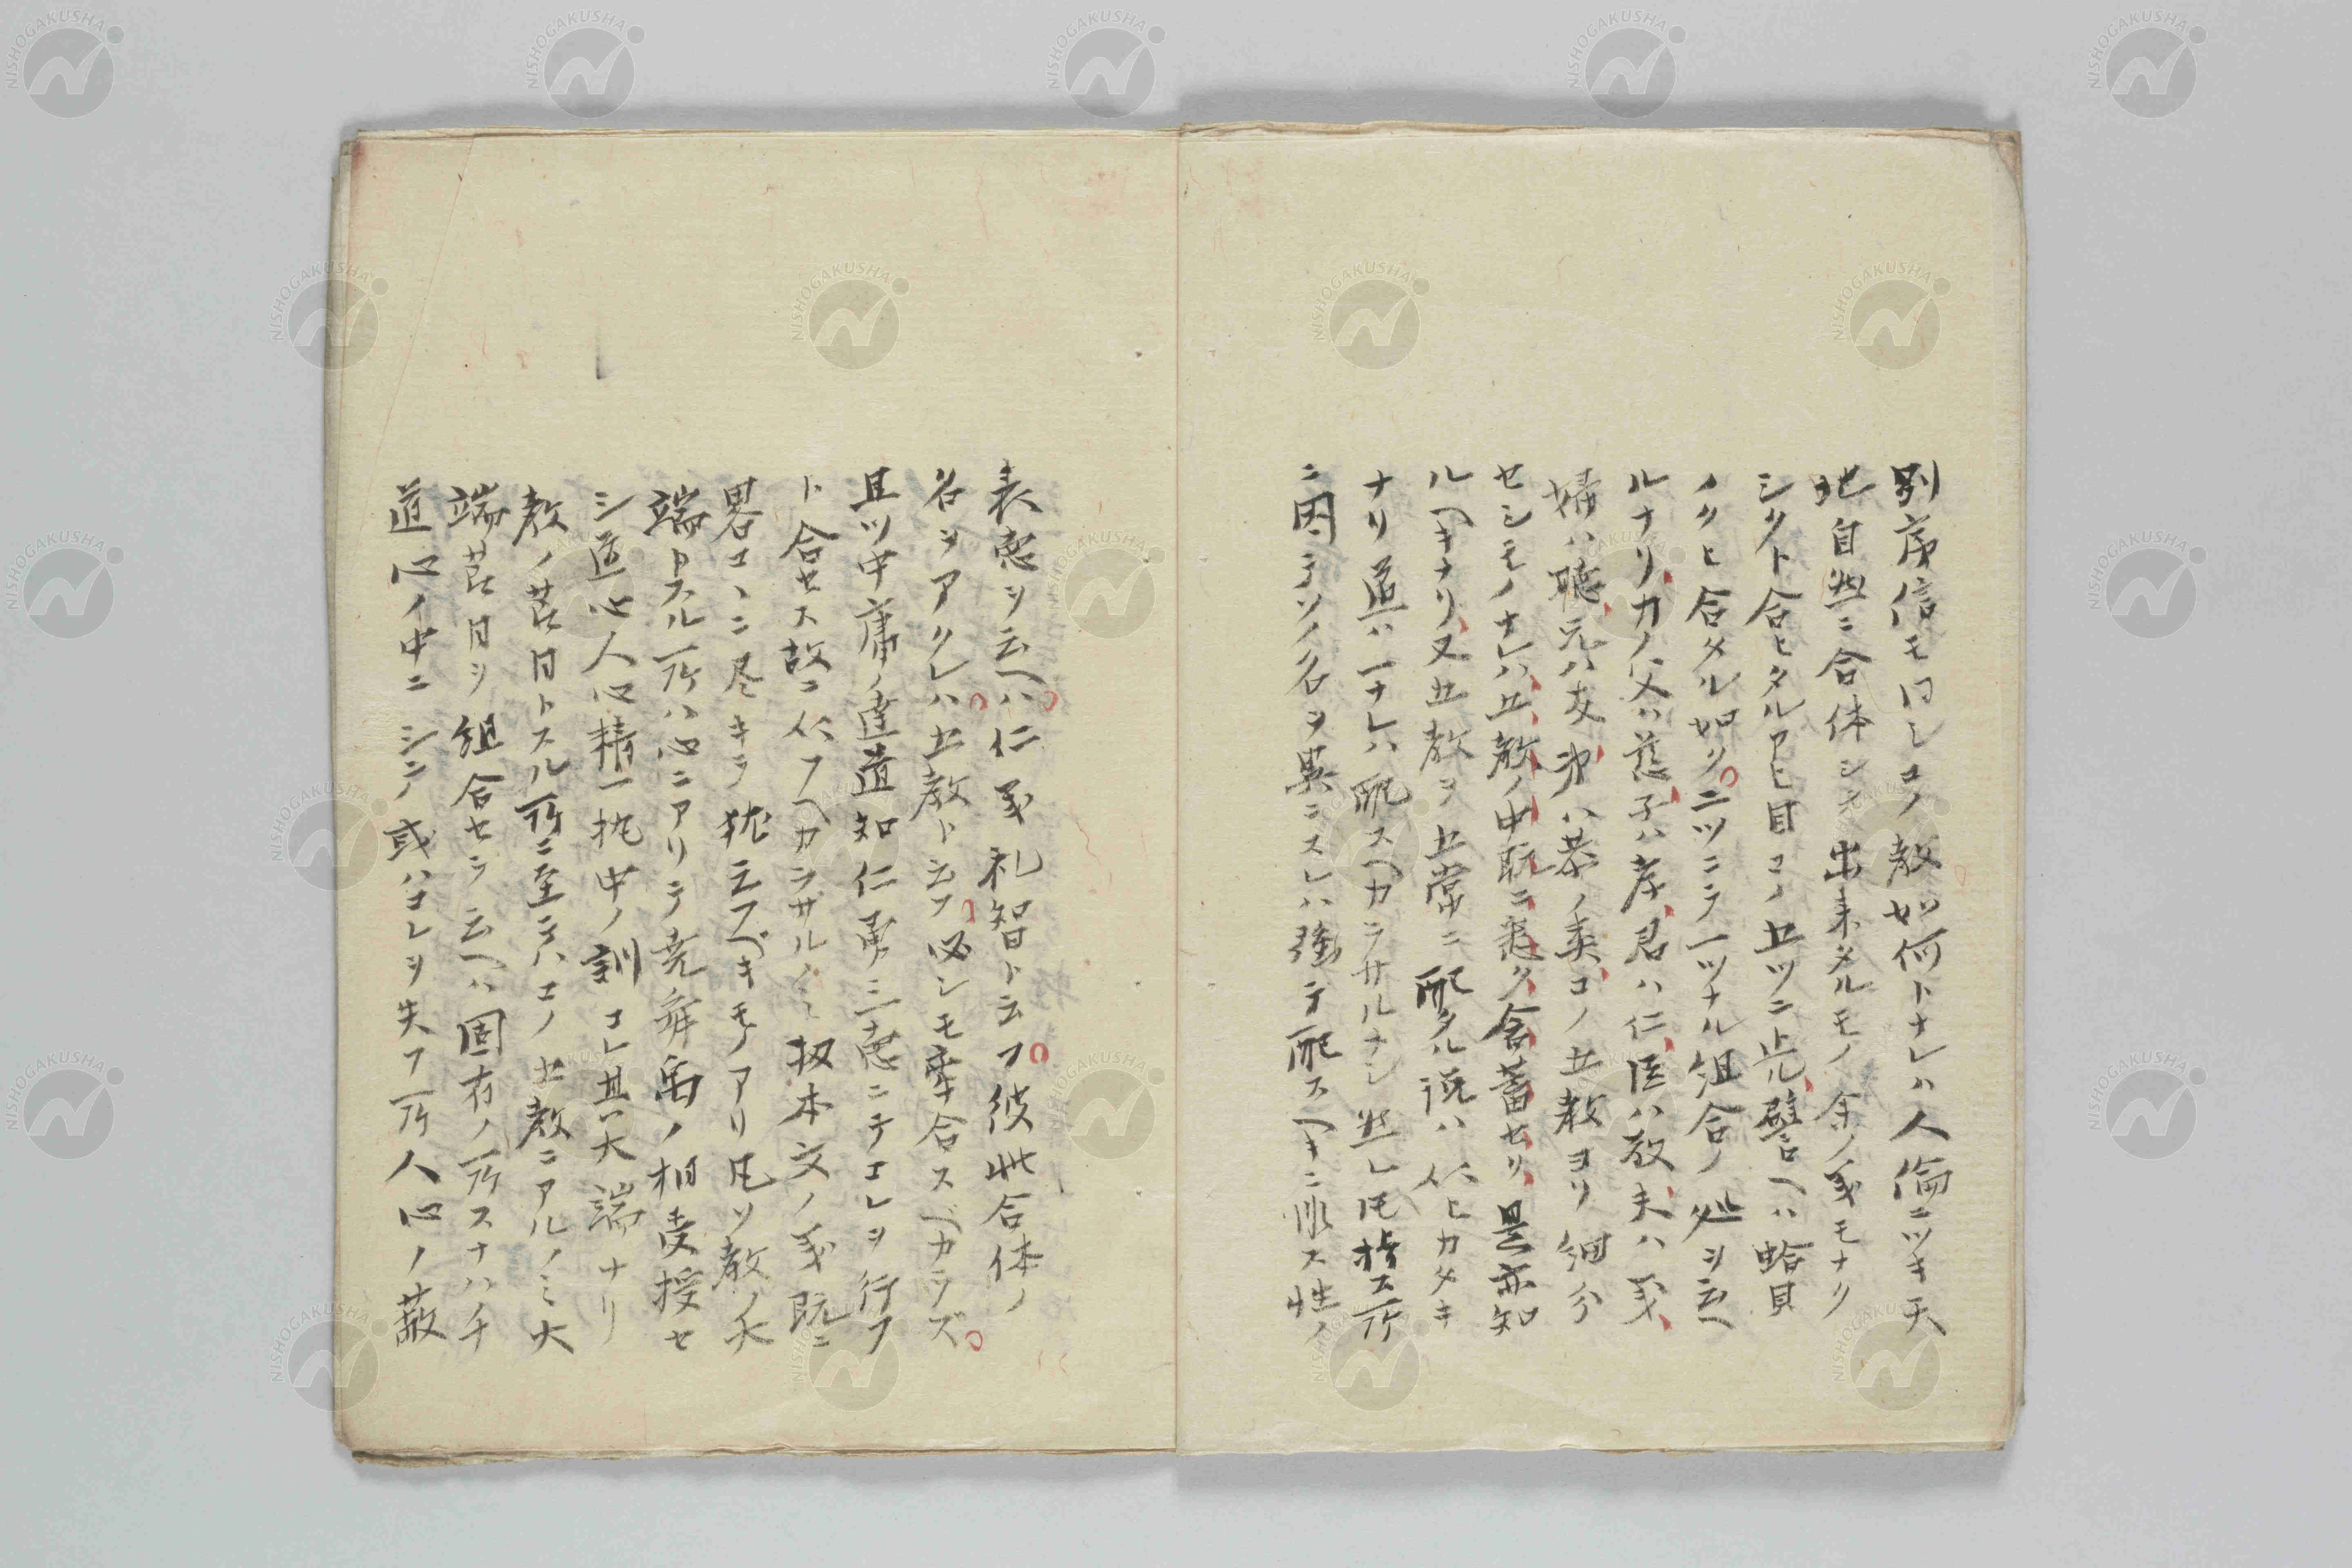 別序信モ同シコノ教如何トナレハ人倫ニツキ天
地自然ニ合体シテ出来タルモノ余ノ義モナク
シクト合ヒタルアヒ目コノ五ツニ止レ譬ヘハ蛤貝
ノクヒ合タル如ク二ツニテ一ツナル組合ノ処ヲ云ヘ
ルナリカノ父ハ慈子ハ孝君ハ仁臣ハ敬夫ハ義
婦ハ聴兄ハ友弟ハ恭ノ類コノ五教ヨリ細分
セシモノナレハ五教ノ中既ニ悉ク含蓄セリ是亦知
ルヘキナリ又五教ヲ五常ニ配タル説ハ従ヒカタキ
ナリ道ハ一ナレハ配スヘカラサルナシ然レ圧指ス所
ニ因テソノ名ヲ異ニスレハ強テ配スヘキニ非ス性ノ
表悳ヲ云ヘハ仁義礼智ト云フ彼此合体ノ
名ヲアクレハ五教ト云フ必シモ牽合スベカラズ
且ツ中庸ノ達道知仁勇三悳ニテコレヲ行フ
ト合セス故ニ従フヘカラサルノミ扨本文ノ義既ニ
畧コヽニ尽キテ猶云フベキモノアリ凡ソ教ノ大
端トスル所ハ心ニアリテ尭舜禹ノ相受授セ
シ道心人心精一執中ノ訓コレ其大端ナリ
教ノ節目トスル所ニ至テハコノ五教ニアルノミ大
端節目ヲ組合セテ云ヘハ固有ノ所スナハチ
道心ノ中ニシテ或ハコレヲ失フ所人心ノ蔽
NISHOGAKUSHA